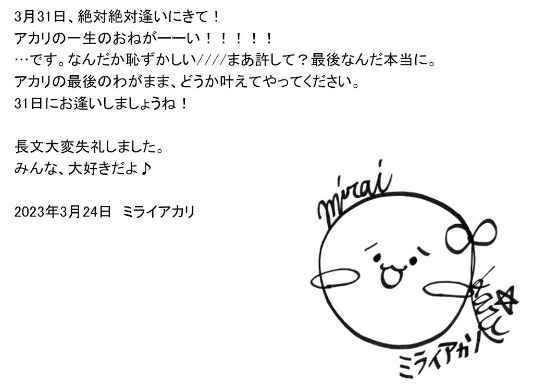 3月31日、絶対絶対逢いにきて！
アカリの一生のおねがーーい！！！！！
…です。なんだか恥ずかしい////まあ許して？最後なんだ本当に。
アカリの最後のわがまま、どうか叶えてやってください。
31日にお逢いしましょうね！
長文大変失礼しました。
みんな、大好きだよ♪
2023年3月24日　ミライアカリ
mirai
ミライアカリ